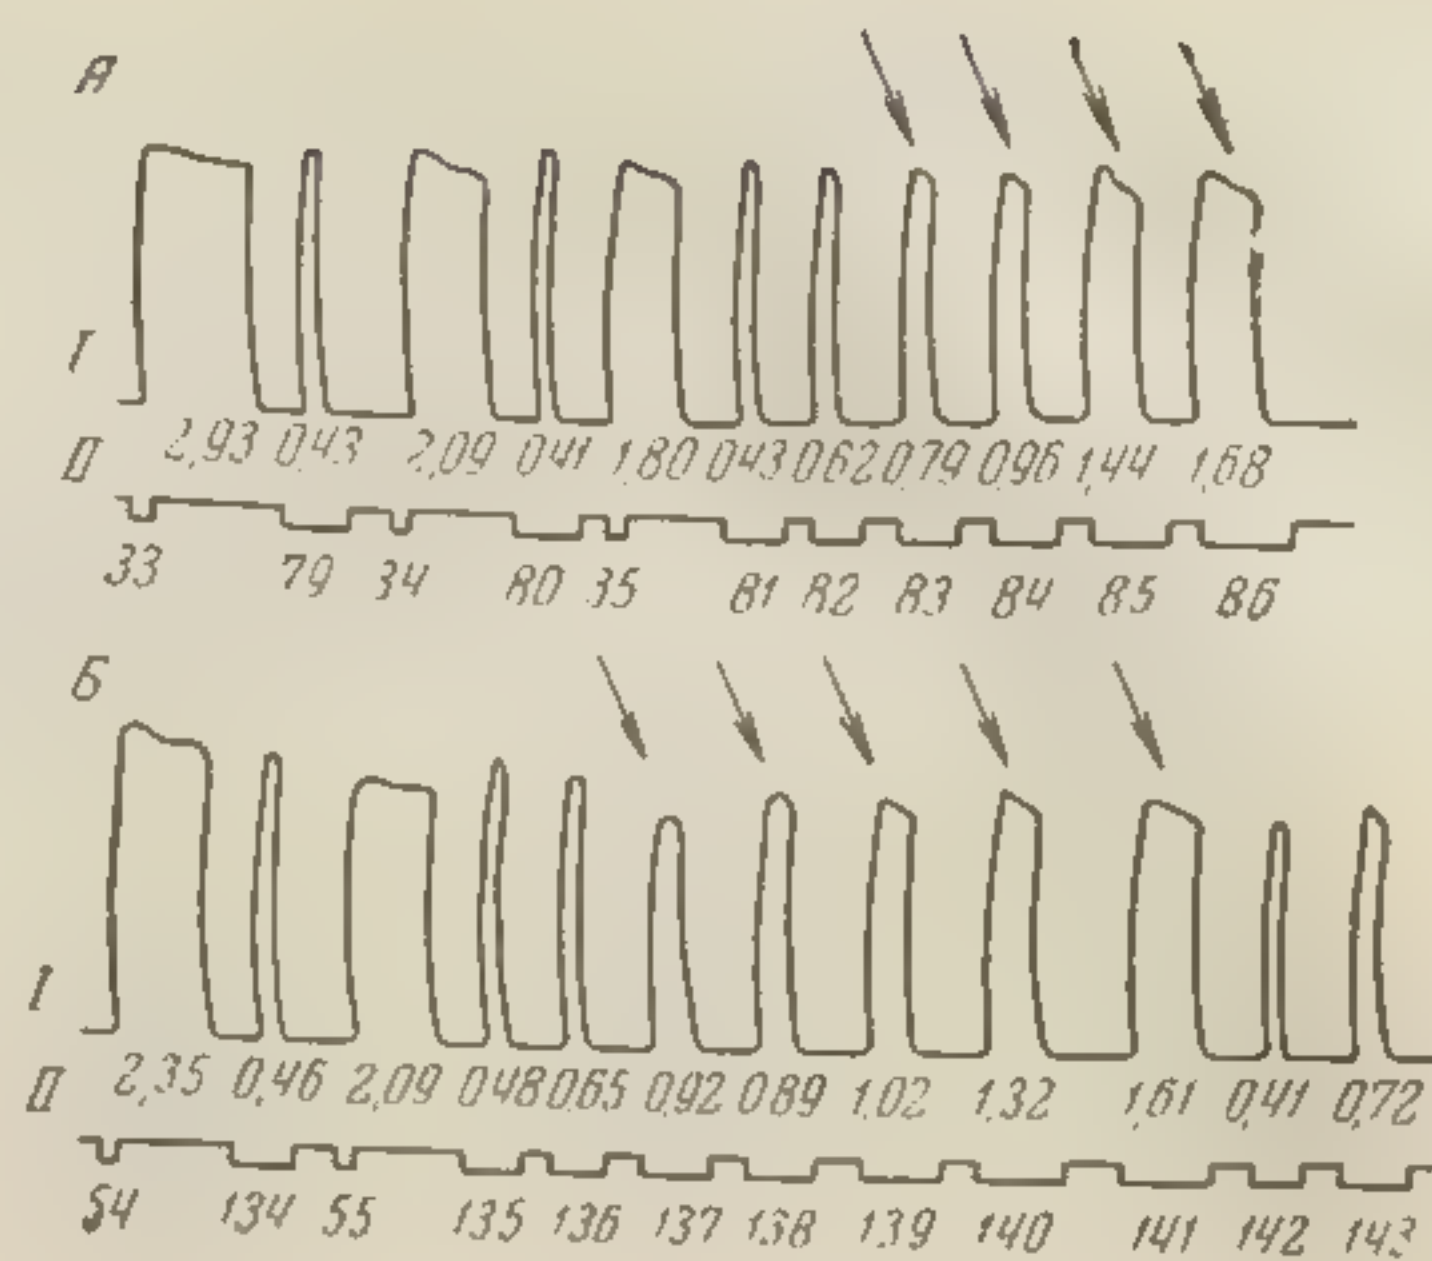 А
I
II 2,93 0,43 2,09 0,41 1,80 0,43 0,62 0,79 0,96 1,44 1,68
33 79 34 80 35 81 82 83 84 85 86
Б
I
II 2,35 0,46 2,09 0,48 0,65 0,92 0,89 1,02 1,32 1,61 0,41 0,72
54 134 55 135 136 137 138 139 140 141 142 143